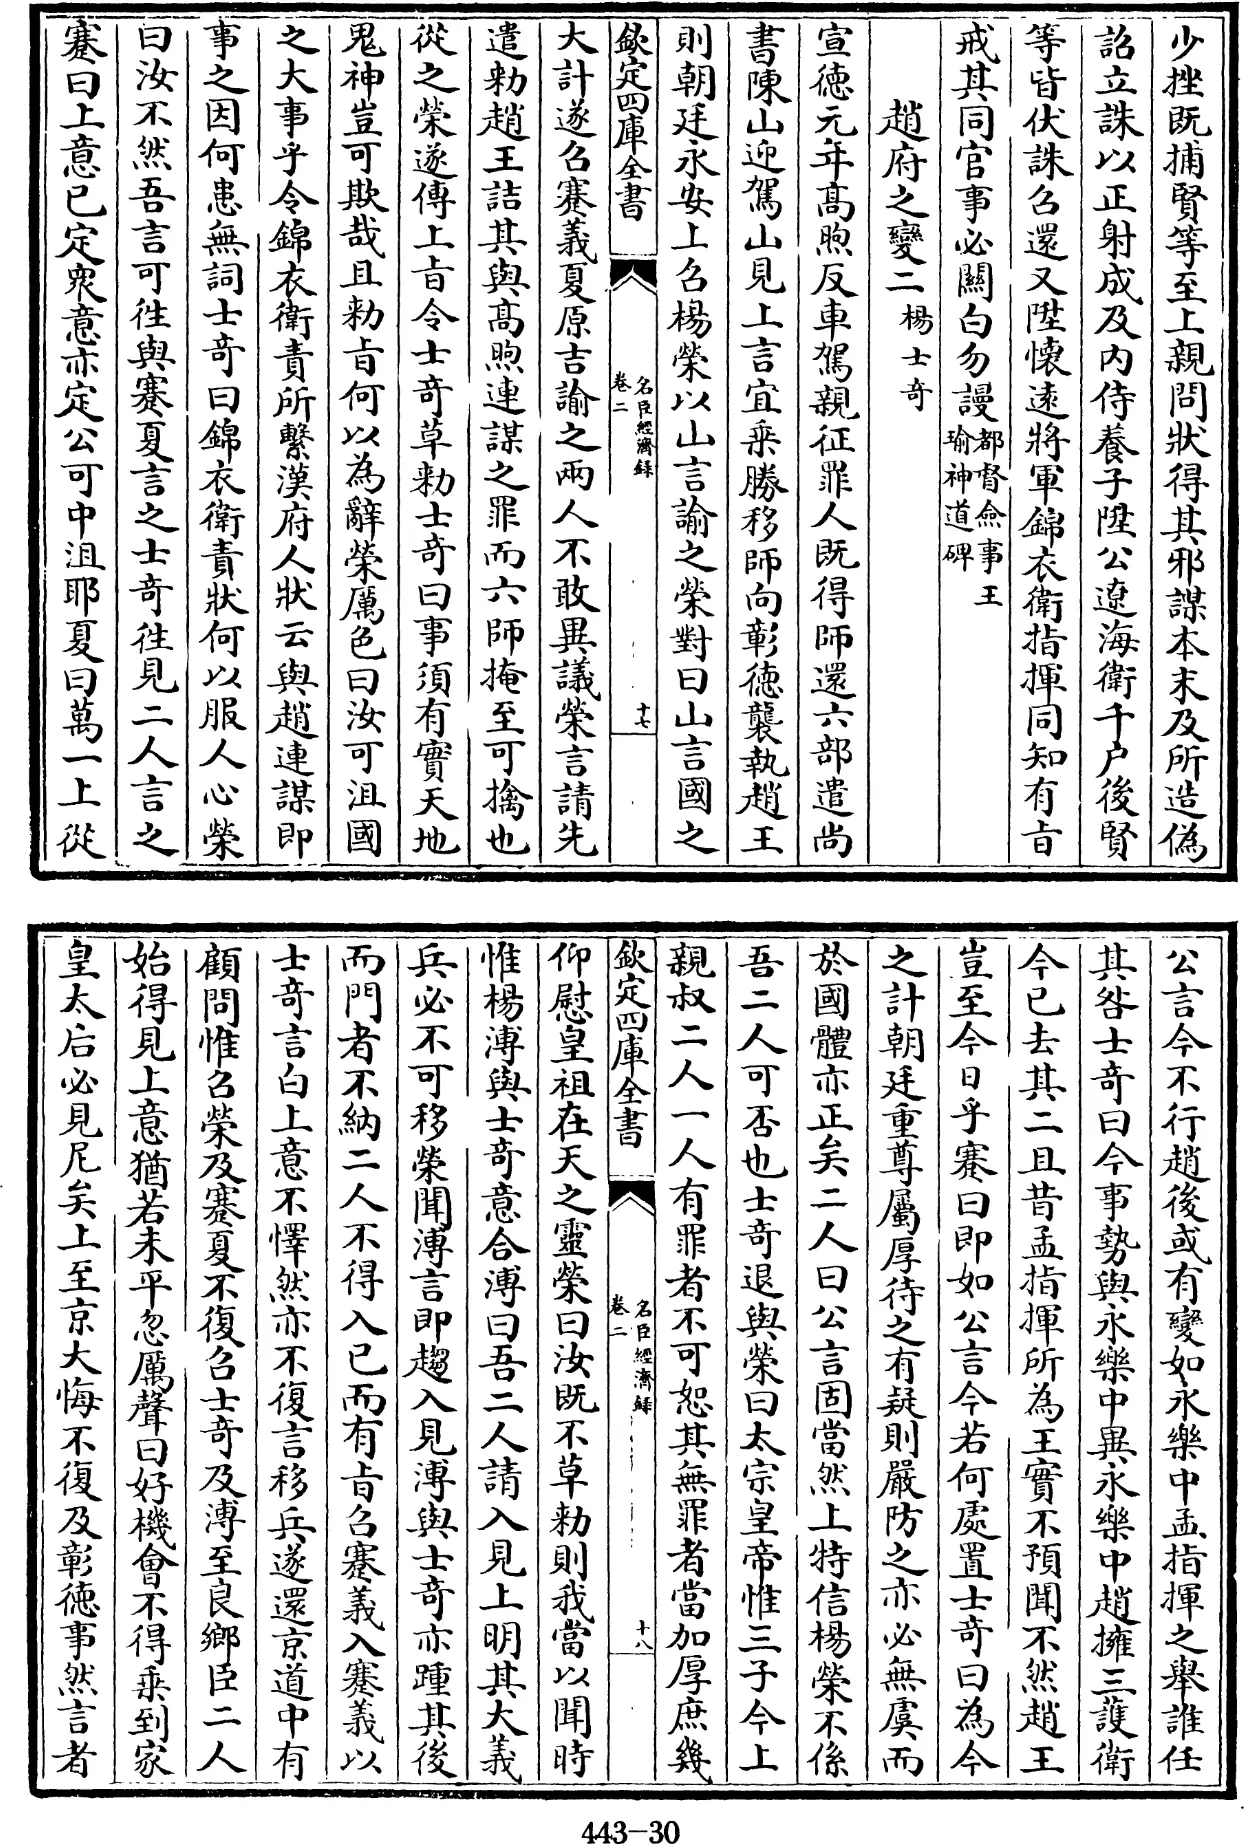 少挫既捕賢等至上親問狀得其邪謀本末及所造偽
詔立誅以正射成及内侍養子陞公遼海衛千户後賢
等皆伏誅召還又陞懷逺將軍錦衣衛指揮同知有㫖
戒其同官事必闗白勿謾都督僉事王瑜神道碑
趙府之變二楊士竒
宣徳元年髙煦反車駕親征罪人既得師還六部遣尚
書陳山迎駕山見上言宜乗勝移師向彰徳襲執趙王
則朝廷永安上召楊榮以山言諭之榮對曰山言國之
欽定四庫全書
名臣經濟録
卷二
十七
大計遂召蹇義夏原吉諭之兩人不敢異議榮言請先
遣勅趙王詰其與髙煦連謀之罪而六師掩至可擒也
從之榮遂傳上㫖令士竒草勅士竒曰事須有實天地
鬼神豈可欺哉且勅㫖何以為辭榮厲色曰汝可沮國
之大事乎令錦衣衛責所繫漢府人狀云與趙連謀即
事之因何患無詞士竒曰錦衣衛責狀何以服人心榮
曰汝不然吾言可徃與蹇夏言之士竒徃見二人言之
蹇曰上意已定衆意亦定公可中沮耶夏曰萬一上從
公言今不行趙後或有變如永樂中孟指揮之舉誰任
其咎士竒曰今事勢與永樂中異永樂中趙擁三䕶衛
今已去其二且昔孟指揮所為王實不預聞不然趙王
豈至今日乎蹇曰即如公言今若何處置士竒曰為今
之計朝廷重尊屬厚待之有疑則嚴防之亦必無虞而
於國體亦正矣二人曰公言固當然上特信楊榮不係
吾二人可否也士竒退與榮曰太宗皇帝惟三子今上
親叔二人一人有罪者不可恕其無罪者當加厚庶幾
欽定四庫全書
名臣經濟録
卷二
十八
仰慰皇祖在天之靈榮曰汝既不草勅則我當以聞時
惟楊溥與士竒意合溥曰吾二人請入見上明其大義
兵必不可移榮聞溥言即趨入見溥與士竒亦踵其後
而門者不納二人不得入已而有㫖召蹇義入蹇義以
士竒言白上意不懌然亦不復言移兵遂還京道中有
顧問惟召榮及蹇夏不復召士竒及溥至良鄉臣二人
始得見上意猶若未平忽厲聲曰好機會不得乗到家
皇太后必見尼矣上至京大悔不復及彰徳事然言者
443-30